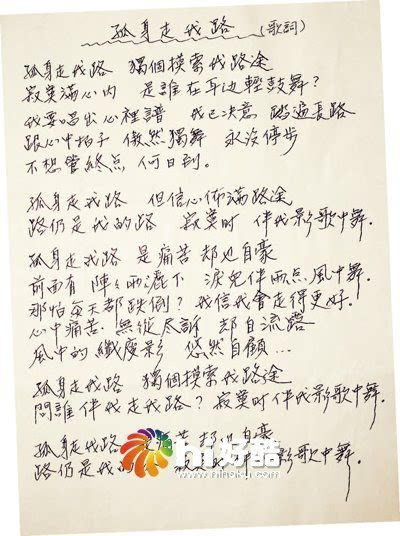 孤身走我路 (歌詞)
孤身走我路 獨個摸索我路途
寂寞滿心內 是誰在耳边輕鼓舞?
我要唱出心裡譜 我已決意踏遍長路
跟心中拍子 傲然獨舞 永没停步
不想管終点 何日到.
孤身走我路 但信心佈滿路途
路仍是我的路 寂寞时 伴我影歌中舞.
孤身走我路 是痛苦 却也自豪
前面有 陣々雨灑下 淚兒伴雨点風中舞.
那怕每天都跌倒? 我信我會走得更好.
心中痛苦 無從尽訴 却自流露
風中的纖瘦影 悠然自顧...
孤身走我路 獨個摸索我路途
問誰伴我走我路? 寂寞时伴我影歌中舞.
孤身走我路 苦却也自豪
路仍是我的 影歌中舞.
hi好酷